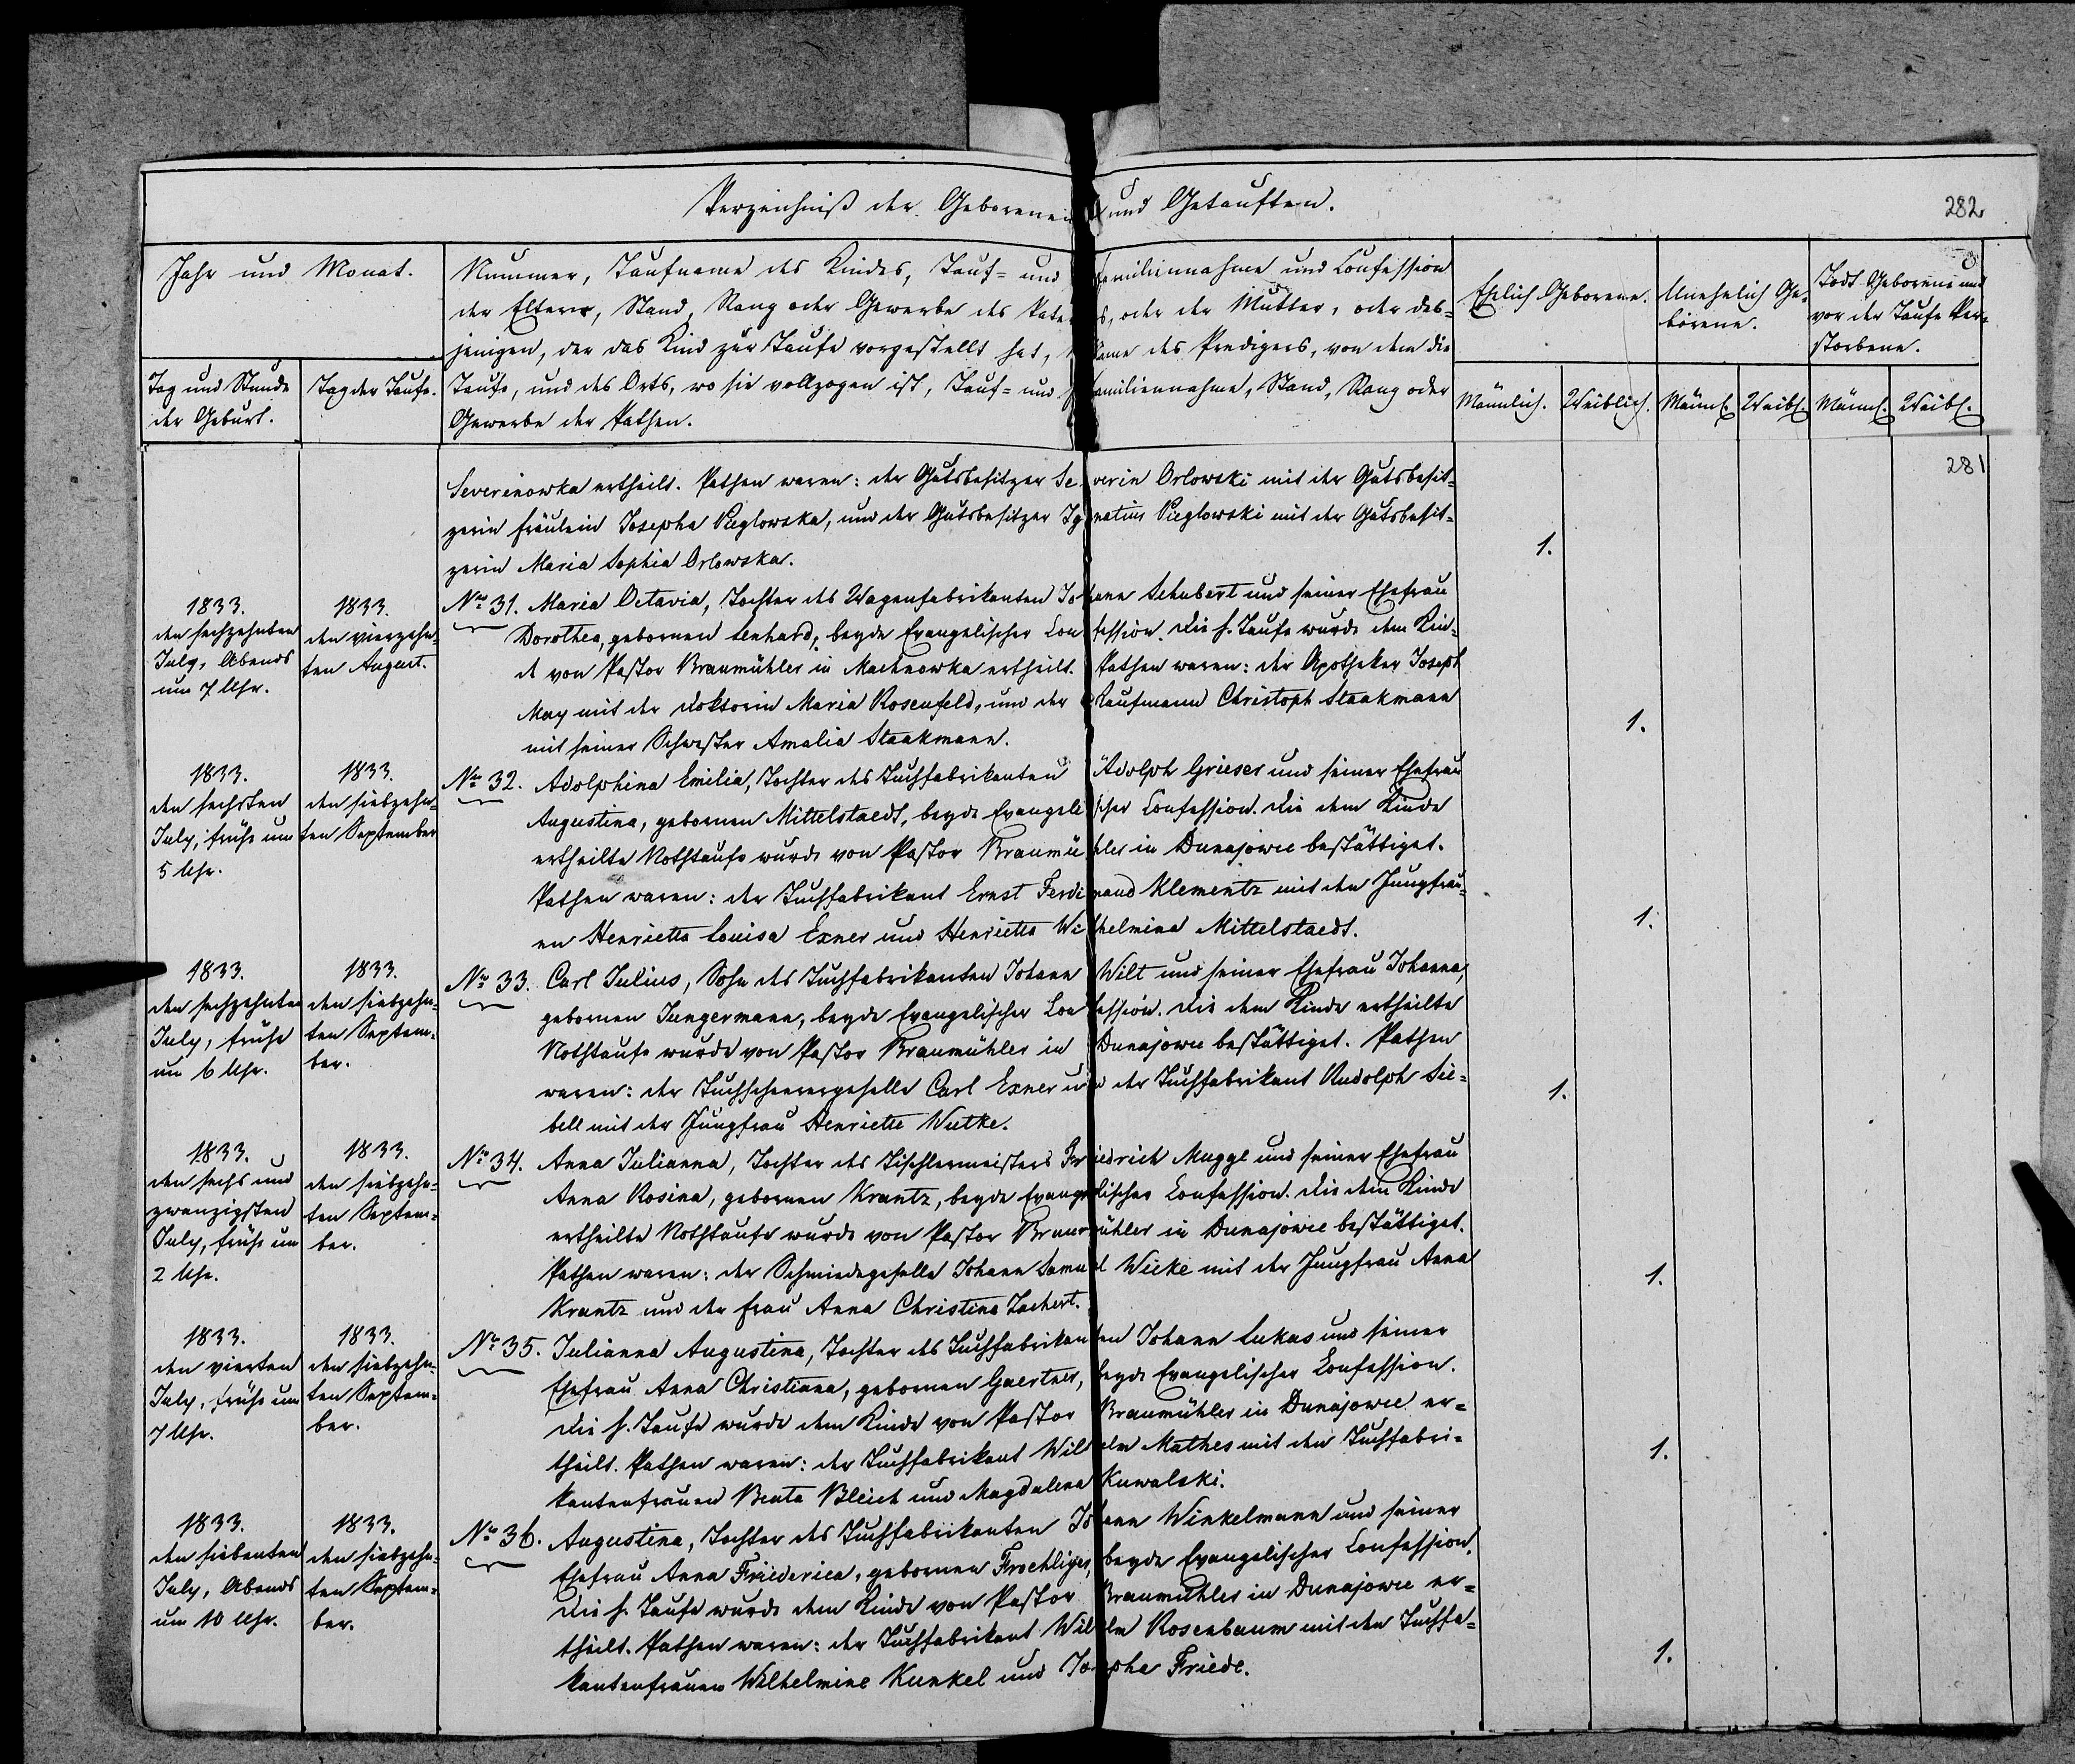 Verzeichniß der Geborenen und Getauften.
282
Jahr und Monat.
Tag und Stunde der Geburt.
Tag der Taufe.
Nummer, Taufname des Kindes, Tauf= und Familiennahme und Confession
der Eltern, Stand, Rang oder Gewerbe des Vaters, oder der Mutter, oder des=
jenigen, der das Kind zur Taufe vorgestellt hat, Name des Predigers, von dem die
Taufe, und des Orts, wo sie vollzogen ist, Tauf= und Familiennahme, Stand, Rang oder
Gewerbe der Pathen.
Ehelich Geborene.
Unehelich Ge=
borene.
Todt Geborene und
vor der Taufe Ver=
storbene.
Männlich. Weiblich. Männl. Weibl. Männl. Weibl.
281
Severinowka ertheilt. Pathen waren: der Gutsbesitzer Severin Orlowski mit der Gutsbesit=
zerin Fräulein Josepha Pieglowska, und der Gutsbesitzer Ignatius Pieglowski mit der Gutsbesit=
zerin Maria Sophia Orlowska.
1.
1833.
den sechzehnten
July, Abends
um 7 Uhr.
1833.
den vierzehn=
ten August.
No 31. Maria Octavia, Tochter des Wagenfabrikanten Johann Schubert und seiner Ehefrau
Dorothea, gebornen Lenhard, beyde Evangelischer Confession. Die h. Taufe wurde dem Kin=
de von Pastor Braumühler in Machnowka ertheilt. Pathen waren: der Apotheker Joseph
May mit der Doktorin Maria Rosenfeld, und der Kaufmann Christoph Staakmann
mit seiner Schwester Amalia Staakmann.
1.
1833.
den sechsten
July, frühe um
5 Uhr.
1833.
den siebzehn=
ten September
No 32. Adolphina Emilia, Tochter des Tuchfabrikanten Adolph Grieser und seiner Ehefrau
Augustina, gebornen Mittelstaedt, beyde Evangelischer Confession. Die dem Kinde
ertheilte Nothtaufe wurde von Pastor Braumühler in Dunajowce bestättiget.
Pathen waren: der Tuchfabrikant Ernst Ferdinand Klementz mit den Jungfrau=
en Henrietta Louisa Exner und Henrietta Wilhelmina Mittelstaedt.
1.
1833.
den sechzehnten
July, frühe
um 6 Uhr.
1833.
den siebzehn=
ten Septem=
ber.
No 33. Carl Julius, Sohn des Tuchfabrikanten Johann Wilt und seiner Ehefrau Johanna,
gebornen Jungermann, beyde Evangelischer Confession. Die dem Kinde ertheilte
Nothtaufe wurde von Pastor Braumühler in Dunajowce bestättiget. Pathen
waren: der Tuchscheerergeselle Carl Exner und der Tuchfabrikant Rudolph Sie=
bell mit der Jungfrau Henriette Wutke.
1.
1833.
den sechs und
zwanzigsten
July, frühe um
2 Uhr.
1833.
den siebzehn=
ten Septem=
ber.
No 34. Anna Julianna, Tochter des Tischlermeisters Friedrich Muggl und seiner Ehefrau
Anna Rosina, gebornen Krantz, beyde Evangelischer Confession. Die dem Kinde
ertheilte Nothtaufe wurde von Pastor Braumühler in Dunajowce bestättiget.
Pathen waren: der Schmiedegeselle Johann Samuel Wicke mit der Jungfrau Anna
Krantz und der Frau Anna Christina Zachert.
1.
1833.
den vierten
July, frühe um
7 Uhr.
1833.
den siebzehn=
ten Septem=
ber.
No 35. Julianna Augustina, Tochter des Tuchfabrikanten Johann Lukas und seiner
Ehefrau Anna Christiana, gebornen Gaertner, beyde Evangelischer Confession.
Die h. Taufe wurde dem Kinde von Pastor Braumühler in Dunajowce er=
theilt. Pathen waren: der Tuchfabrikant Wilhelm Mathes mit den Tuchfabri=
kantenfrauen Beata Bleich und Magdalena Kuwalski.
1.
1833.
den siebenten
July, Abends
um 10 Uhr.
1833.
den siebzehn=
ten Septem=
ber.
No 36. Augustina, Tochter des Tuchfabrikanten Johann Winkelmann und seiner
Ehefrau Anna Friederica, gebornen Froehliger, beyde Evangelischer Confession.
Die h. Taufe wurde dem Kinde von Pastor Braumühler in Dunajowce er=
theilt. Pathen waren: der Tuchfabrikant Wilhelm Rosenbaum mit den Tuchfa=
kantenfrauen Wilhelmine Kunkel und Josepha Friede.
1.